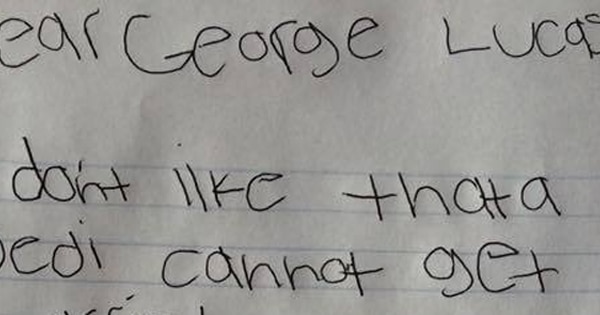 ear George Lucas
don't like that a
edi cannot get